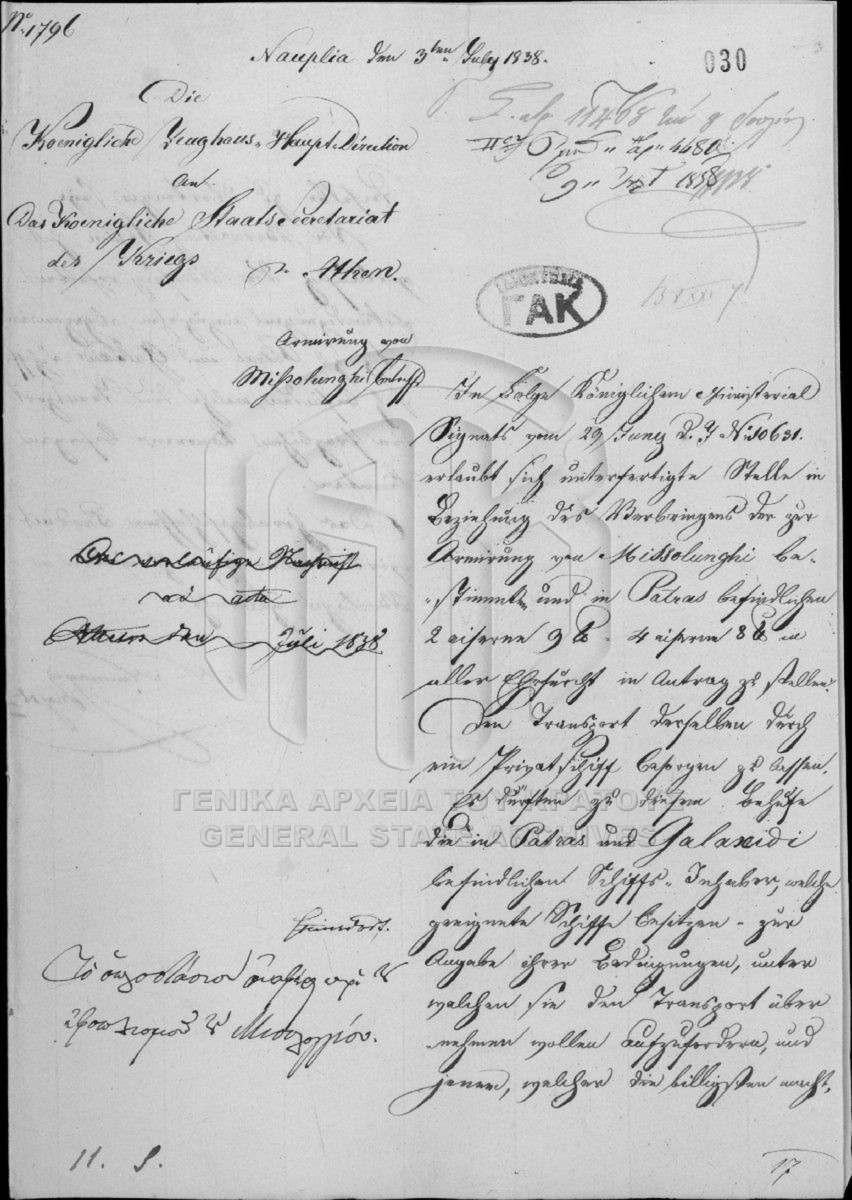 No 1796
Nauplia den 3ten July 1838.
030
Die
Koenigliche Zeughaus-Haupt-Direction
an
Das Koenigliche Staats Secretariat
des Kriegs
Athen.
11468
4480
1838
ΓΑΚ
Armirung von
Missolunghi betreff
In Folge Königlichen Ministerial
Signats vom 29 Juny d. J. No 10631.
erlaubt sich unterfertigte Stelle in
Beziehung des Verbringens der zur
Armirung von Missolunghi be-
stimmten und in Patras befindlichen
2 eiserne 9 ℔ - 4 eiserne 8 ℔ in
aller Ehrfurcht in Antrag zu stellen.
Den Transport derselben durch
ein Privatschiff besorgen zu lassen.
Es dürften zu diesem Behufe
die in Patras und Galaxidi
befindlichen Schiffs-Inhaber, welche
geeignete Schiffe besitzen - zur
Angabe ihrer Bedingungen, unter
welchen sie den Transport über
nehmen wollen aufzufordern, und
jener, welcher die billigsten macht,
vorläufige
ad acta
Athen den Juli 1838
Τὸ ὁπλοστάσιον περὶ τοῦ
ἐφοπλισμοῦ τοῦ Μεσολογγίου.
11. S.
17
ΓΕΝΙΚΑ ΑΡΧΕΙΑ ΤΟΥ ΚΡΑΤΟΥΣ
GENERAL STATE ARCHIVES